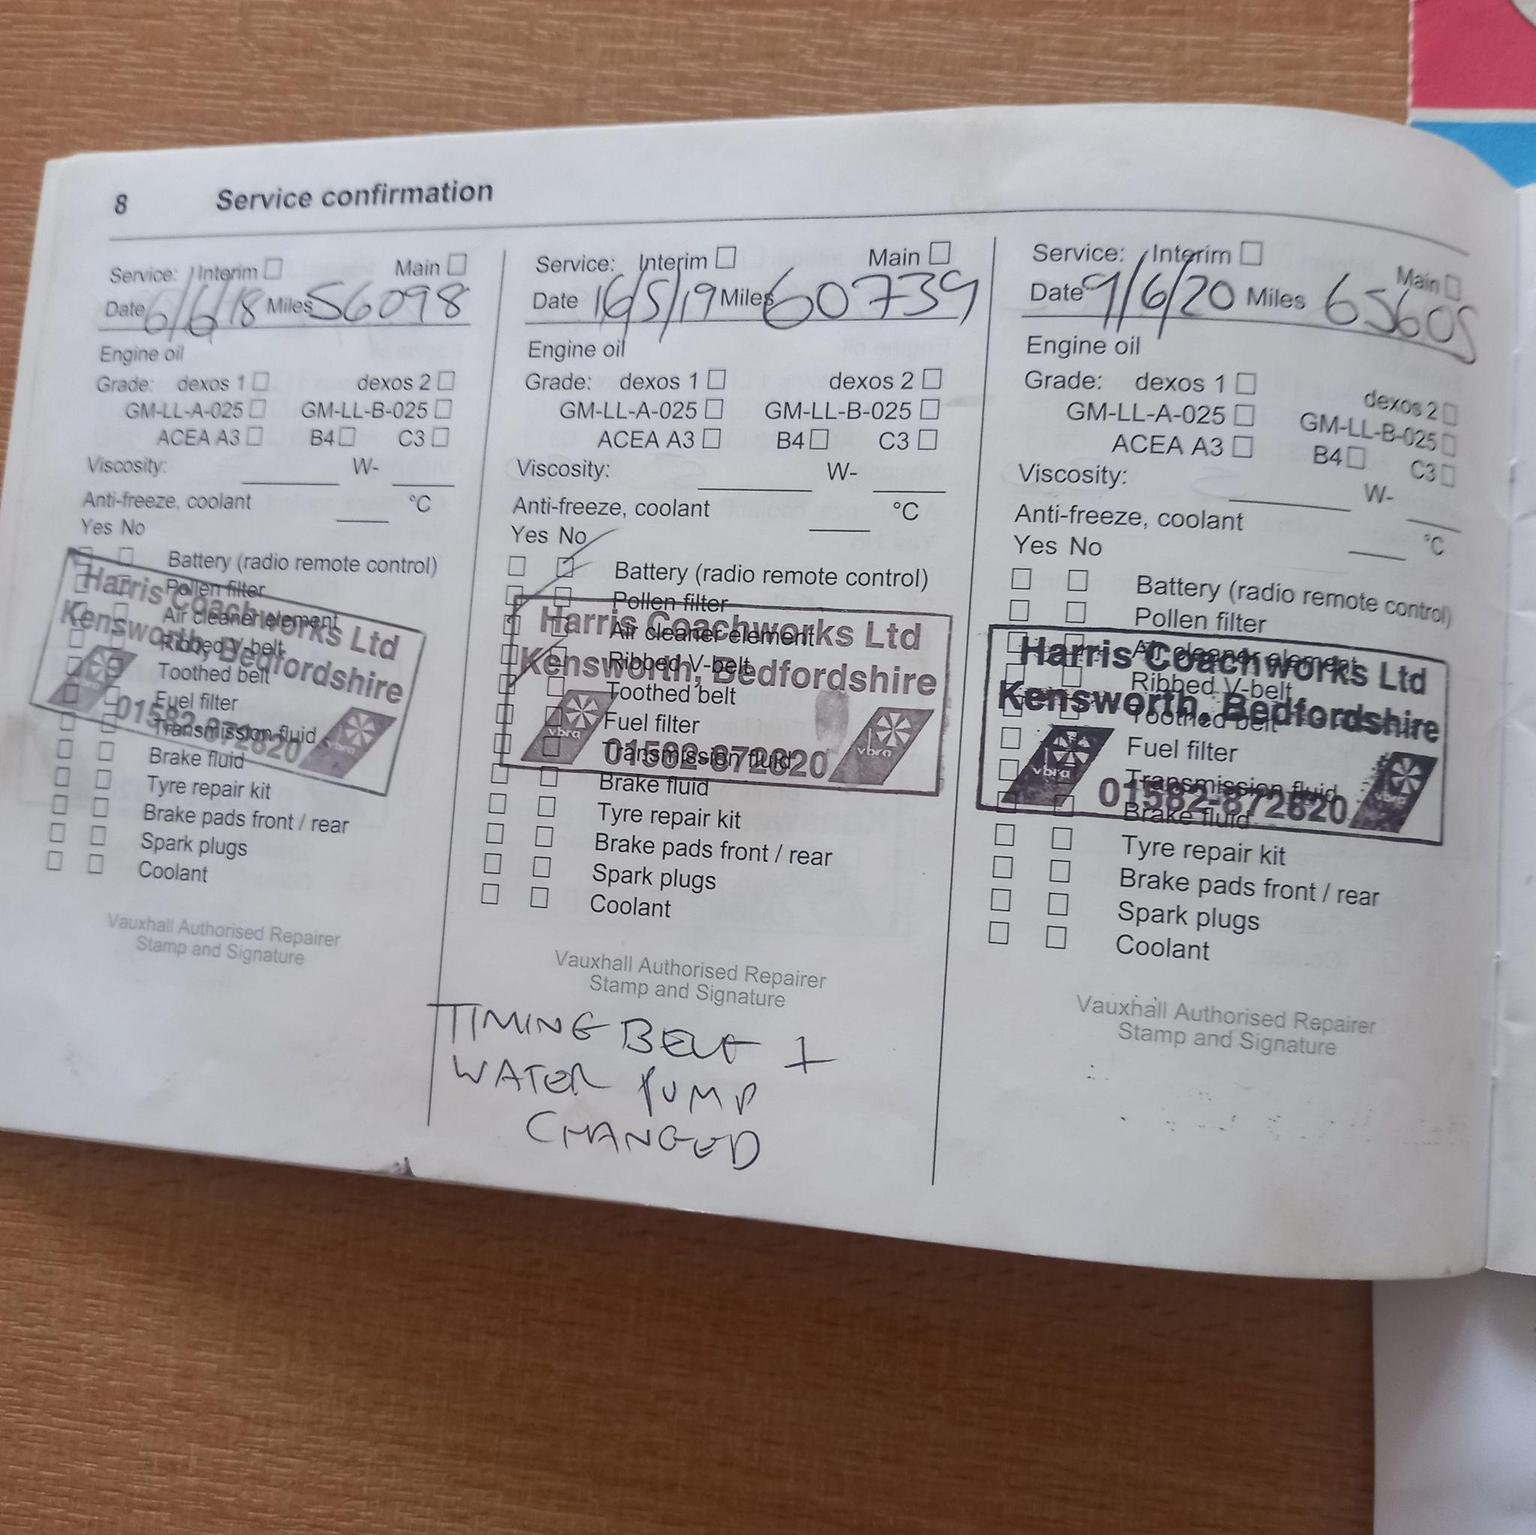 8 Service confirmation
Service: Interim Main
Date 6/6/18 Miles 56098
Engine oil
Grade: dexos 1 dexos 2
GM-LL-A-025 GM-LL-B-025
ACEA A3 B4 C3
Viscosity: W-
Anti-freeze, coolant °C
Yes No
Battery (radio remote control)
Pollen filter
Air cleaner element
Ribbed V-belt
Toothed belt
Fuel filter
Transmission fluid
Brake fluid
Tyre repair kit
Brake pads front / rear
Spark plugs
Coolant
Harris Coachworks Ltd
Kensworth, Bedfordshire
01582-872820
vbra
Vauxhall Authorised Repairer
Stamp and Signature
Service: Interim Main
Date 16/5/19 Miles 60739
Engine oil
Grade: dexos 1 dexos 2
GM-LL-A-025 GM-LL-B-025
ACEA A3 B4 C3
Viscosity: W-
Anti-freeze, coolant °C
Yes No
Battery (radio remote control)
Pollen filter
Air cleaner element
Ribbed V-belt
Toothed belt
Fuel filter
Transmission fluid
Brake fluid
Tyre repair kit
Brake pads front / rear
Spark plugs
Coolant
Harris Coachworks Ltd
Kensworth, Bedfordshire
vbra 01582-872820 vbra
Vauxhall Authorised Repairer
Stamp and Signature
TIMING BELT +
WATER PUMP
CHANGED
Service: Interim Main
Date 9/6/20 Miles 65605
Engine oil
Grade: dexos 1 dexos 2
GM-LL-A-025 GM-LL-B-025
ACEA A3 B4 C3
Viscosity: W-
Anti-freeze, coolant °C
Yes No
Battery (radio remote control)
Pollen filter
Air cleaner element
Ribbed V-belt
Toothed belt
Fuel filter
Transmission fluid
Brake fluid
Tyre repair kit
Brake pads front / rear
Spark plugs
Coolant
Harris Coachworks Ltd
Kensworth, Bedfordshire
vbra 01582-872820
Vauxhall Authorised Repairer
Stamp and Signature